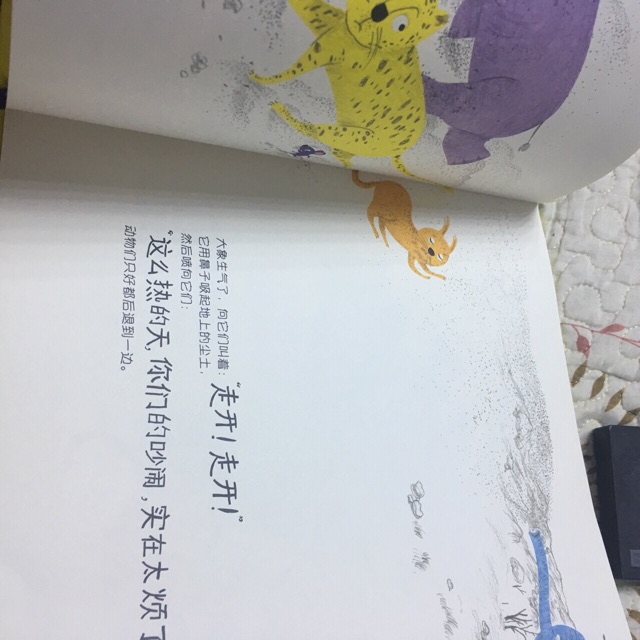 大象生气了，向它们叫着：“走开！走开！”
它用鼻子吸起地上的尘土，
然后喷向它们：
“这么热的天，你们的吵闹，实在太烦了
动物们只好都后退到一边。